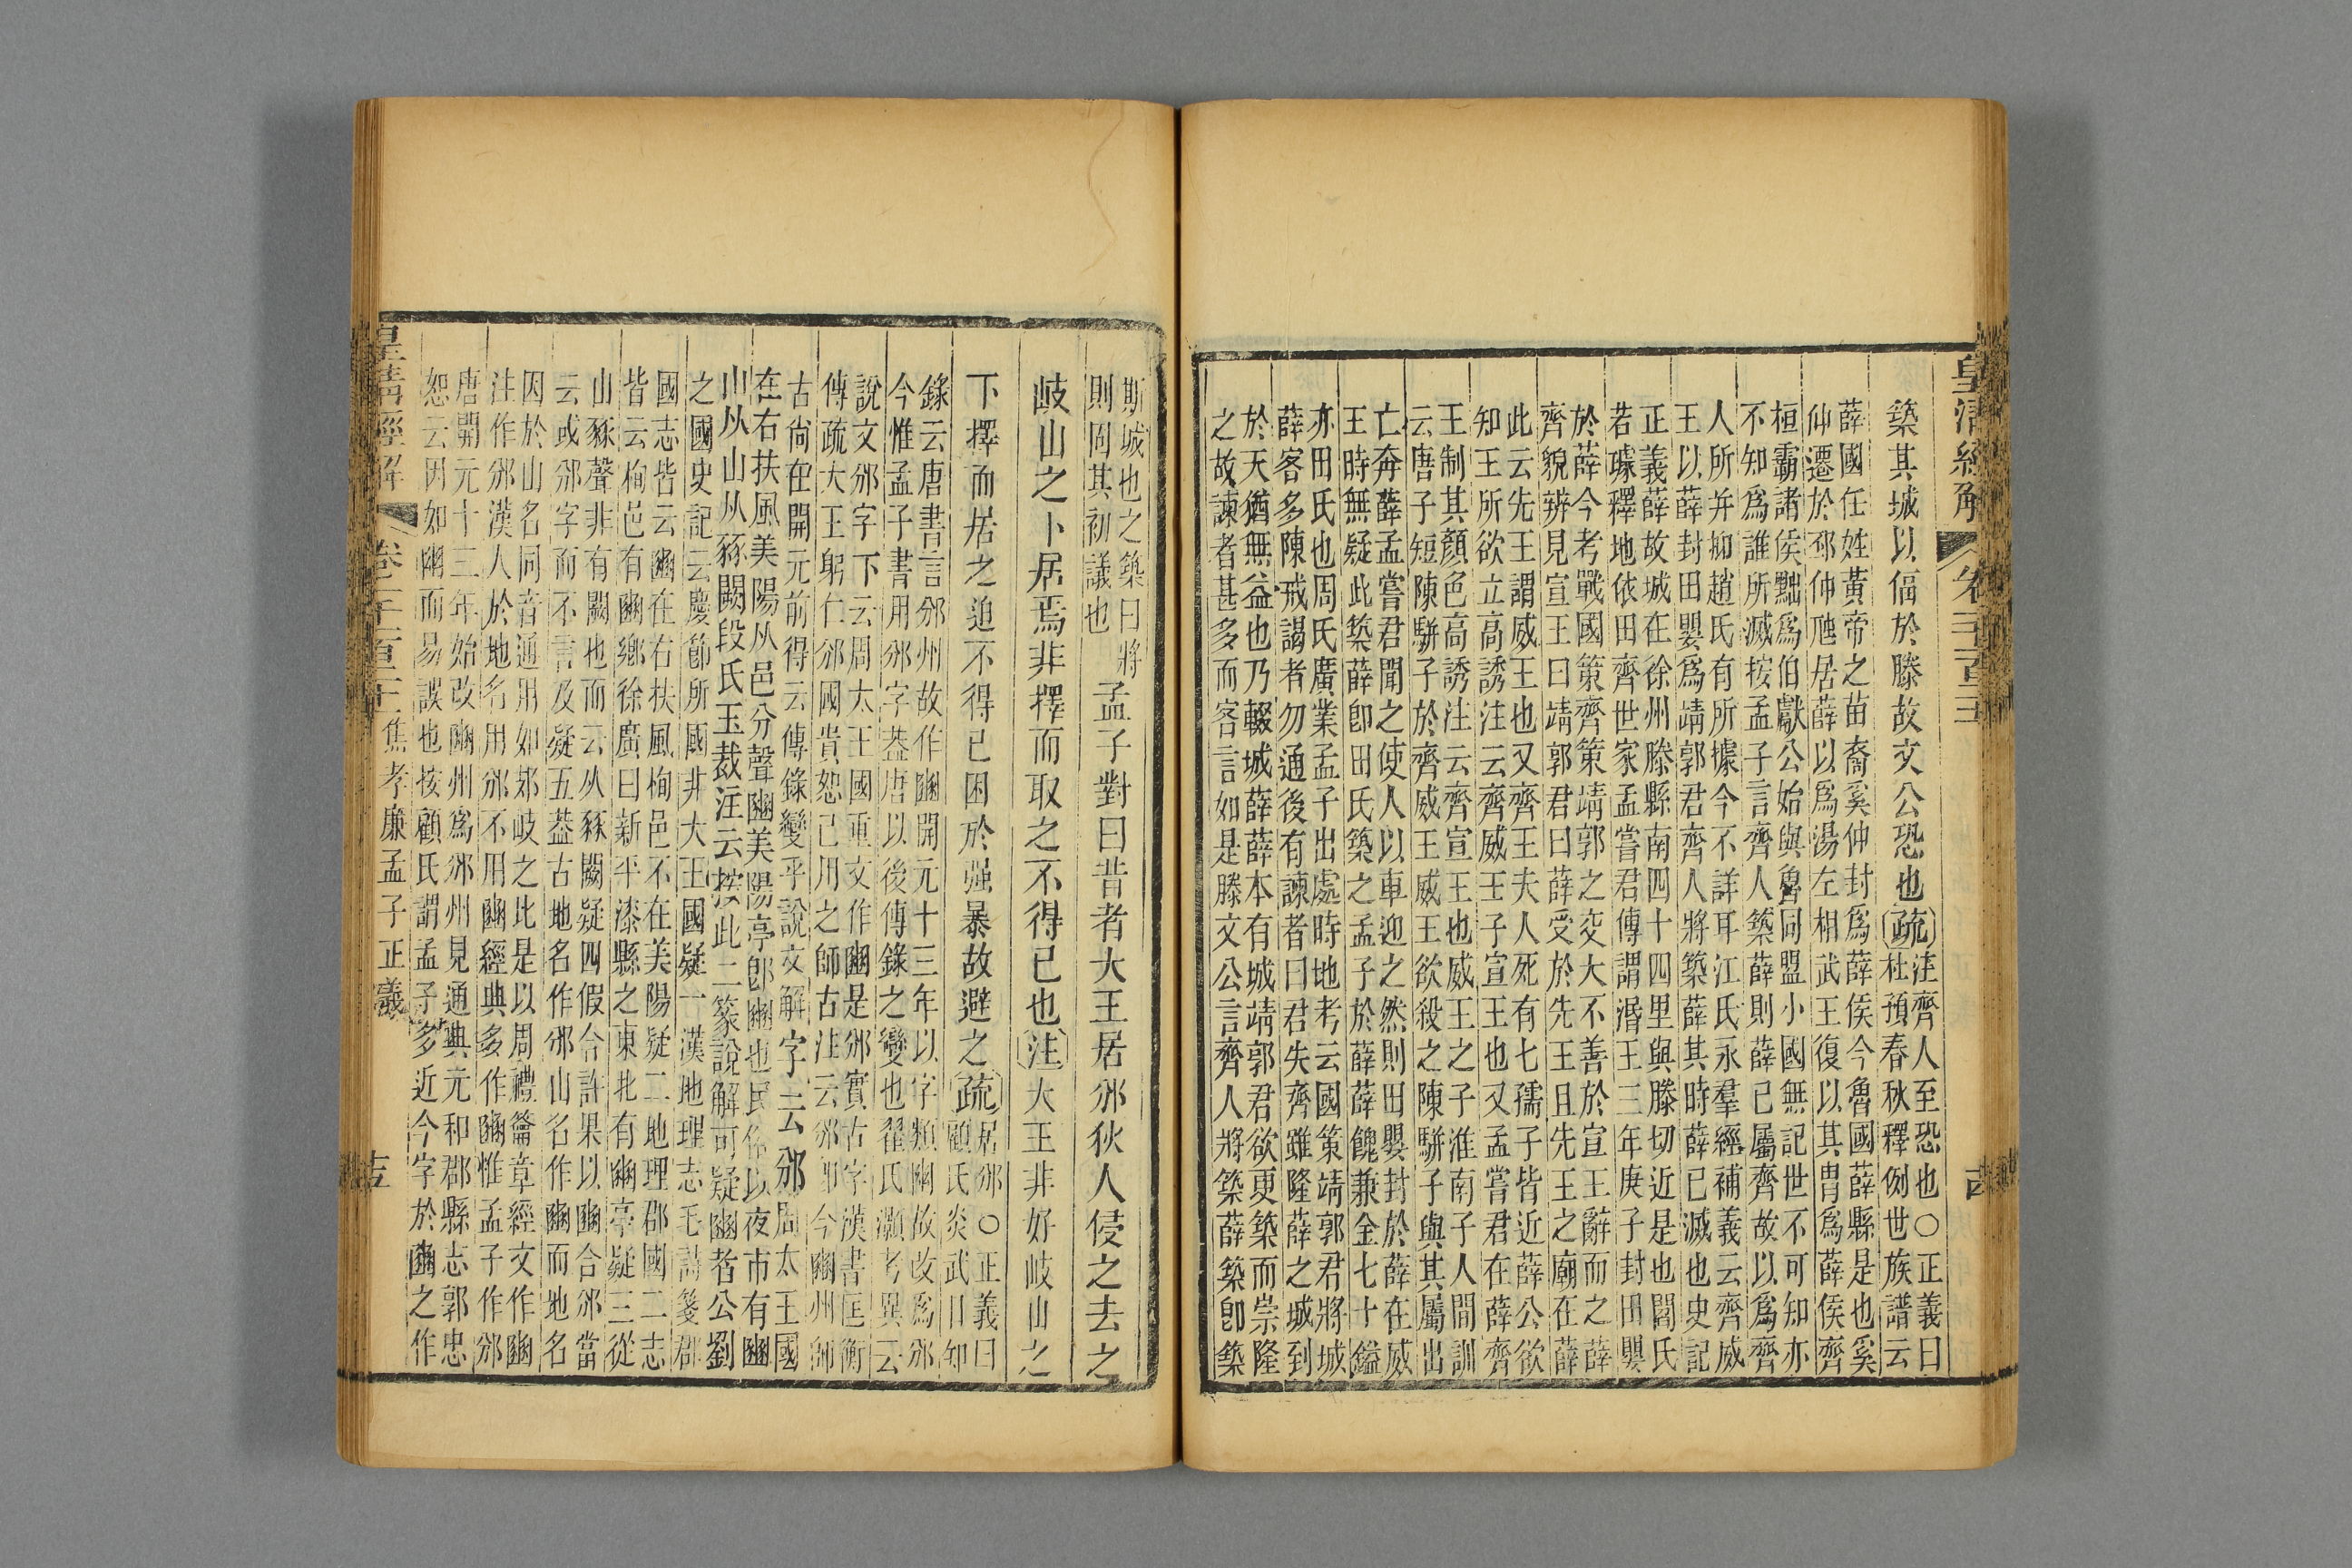 皇清經解
卷一千一百三十
築其城以偪於滕故文公恐也疏
注齊人至恐也○正義曰
杜預春秋釋例世族譜云
薛國任姓黃帝之苗裔奚仲封為薛侯今魯國薛縣是也奚
仲遷於邳仲虺居薛以為湯左相武王復以其胄為薛侯齊
桓霸諸侯黜爲伯獻公始與魯同盟小國無記世不可知亦
不知爲誰所滅按孟子言齊人築薛則薛已屬齊故以爲齊
人所并抑趙氏有所據今不詳耳江氏永羣經補義云齊威
王以薛封田嬰爲靖郭君齊人將築薛其時薛已滅也史記
正義薛故城在徐州滕縣南四十四里與滕切近是也閻氏
若璩釋地依田齊世家孟嘗君傳謂湣王三年庚子封田嬰
於薛今考戰國策齊策靖郭之交大不善於宣王辭而之薛
齊貌辨見宣王曰靖郭君曰薛受於先王且先王之廟在薛
此云先王謂威王也又齊王夫人死有七孺子皆近薛公欲
知王所欲立高誘注云齊威王子宣王也又孟嘗君在薛齊
王制其顏色高誘注云齊宣王也威王之子淮南子人間訓
云唐子短陳駢子於齊威王威王欲殺之陳駢子與其屬出
亡奔薛孟嘗君聞之使人以車迎之然則田嬰封於薛在威
王時無疑此築薛卽田氏築之孟子於薛薛餽兼金七十鎰
亦田氏也周氏廣業孟子出處時地考云國策靖郭君將城
薛客多陳戒謁者勿通後有諫者曰君失齊雖隆薛之城到
於天猶無益也乃輟城薛薛本有城靖郭君欲更築而崇隆
之故諫者甚多而客言如是滕文公言齊人將築薛築卽築
斯城也之築曰將
則固其初議也
孟子對曰昔者大王居邠狄人侵之去之
岐山之下居焉非擇而取之不得已也注大王非好岐山之
下擇而居之迫不得已困於强暴故避之疏
居邠○正義曰
顧氏炎武日知
錄云唐書言邠州故作豳開元十三年以字類幽故改爲邠
今惟孟子書用邠字葢唐以後傳錄之變也翟氏灝考異云
說文邠字下云周太王國重文作豳是邠實古字漢書匡衡
傳疏大王躬仁邠國貴恕已用之師古注云邠卽今豳州師
古尚在開元前得云傳錄變乎說文解字云邠周太王國
在右扶風美陽从邑分聲豳美陽亭卽豳也民俗以夜市有豳
山从山从豩闕段氏玉裁注云按此二篆說解可疑豳者公劉
之國史記云慶節所國非大王國疑一漢地理志毛詩箋郡
國志皆云豳在右扶風栒邑不在美陽疑二地理郡國二志
皆云栒邑有豳鄉徐廣曰新平漆縣之東北有豳亭疑三從
山豩聲非有闕也而云从豩闕疑四假合許果以豳合邠當
云或邠字而不言及疑五葢古地名作邠山名作豳而地名
因於山名同音通用如郊岐之比是以周禮籥章經文作豳
注作邠漢人於地名用邠不用豳經典多作豳惟孟子作邠
唐開元十三年始改豳州爲邠州見通典元和郡縣志郭忠
恕云因如豳而易誤也按顧氏謂孟子多近今字於豳之作
皇清經解
卷一千一百三十
焦孝廉孟子正義